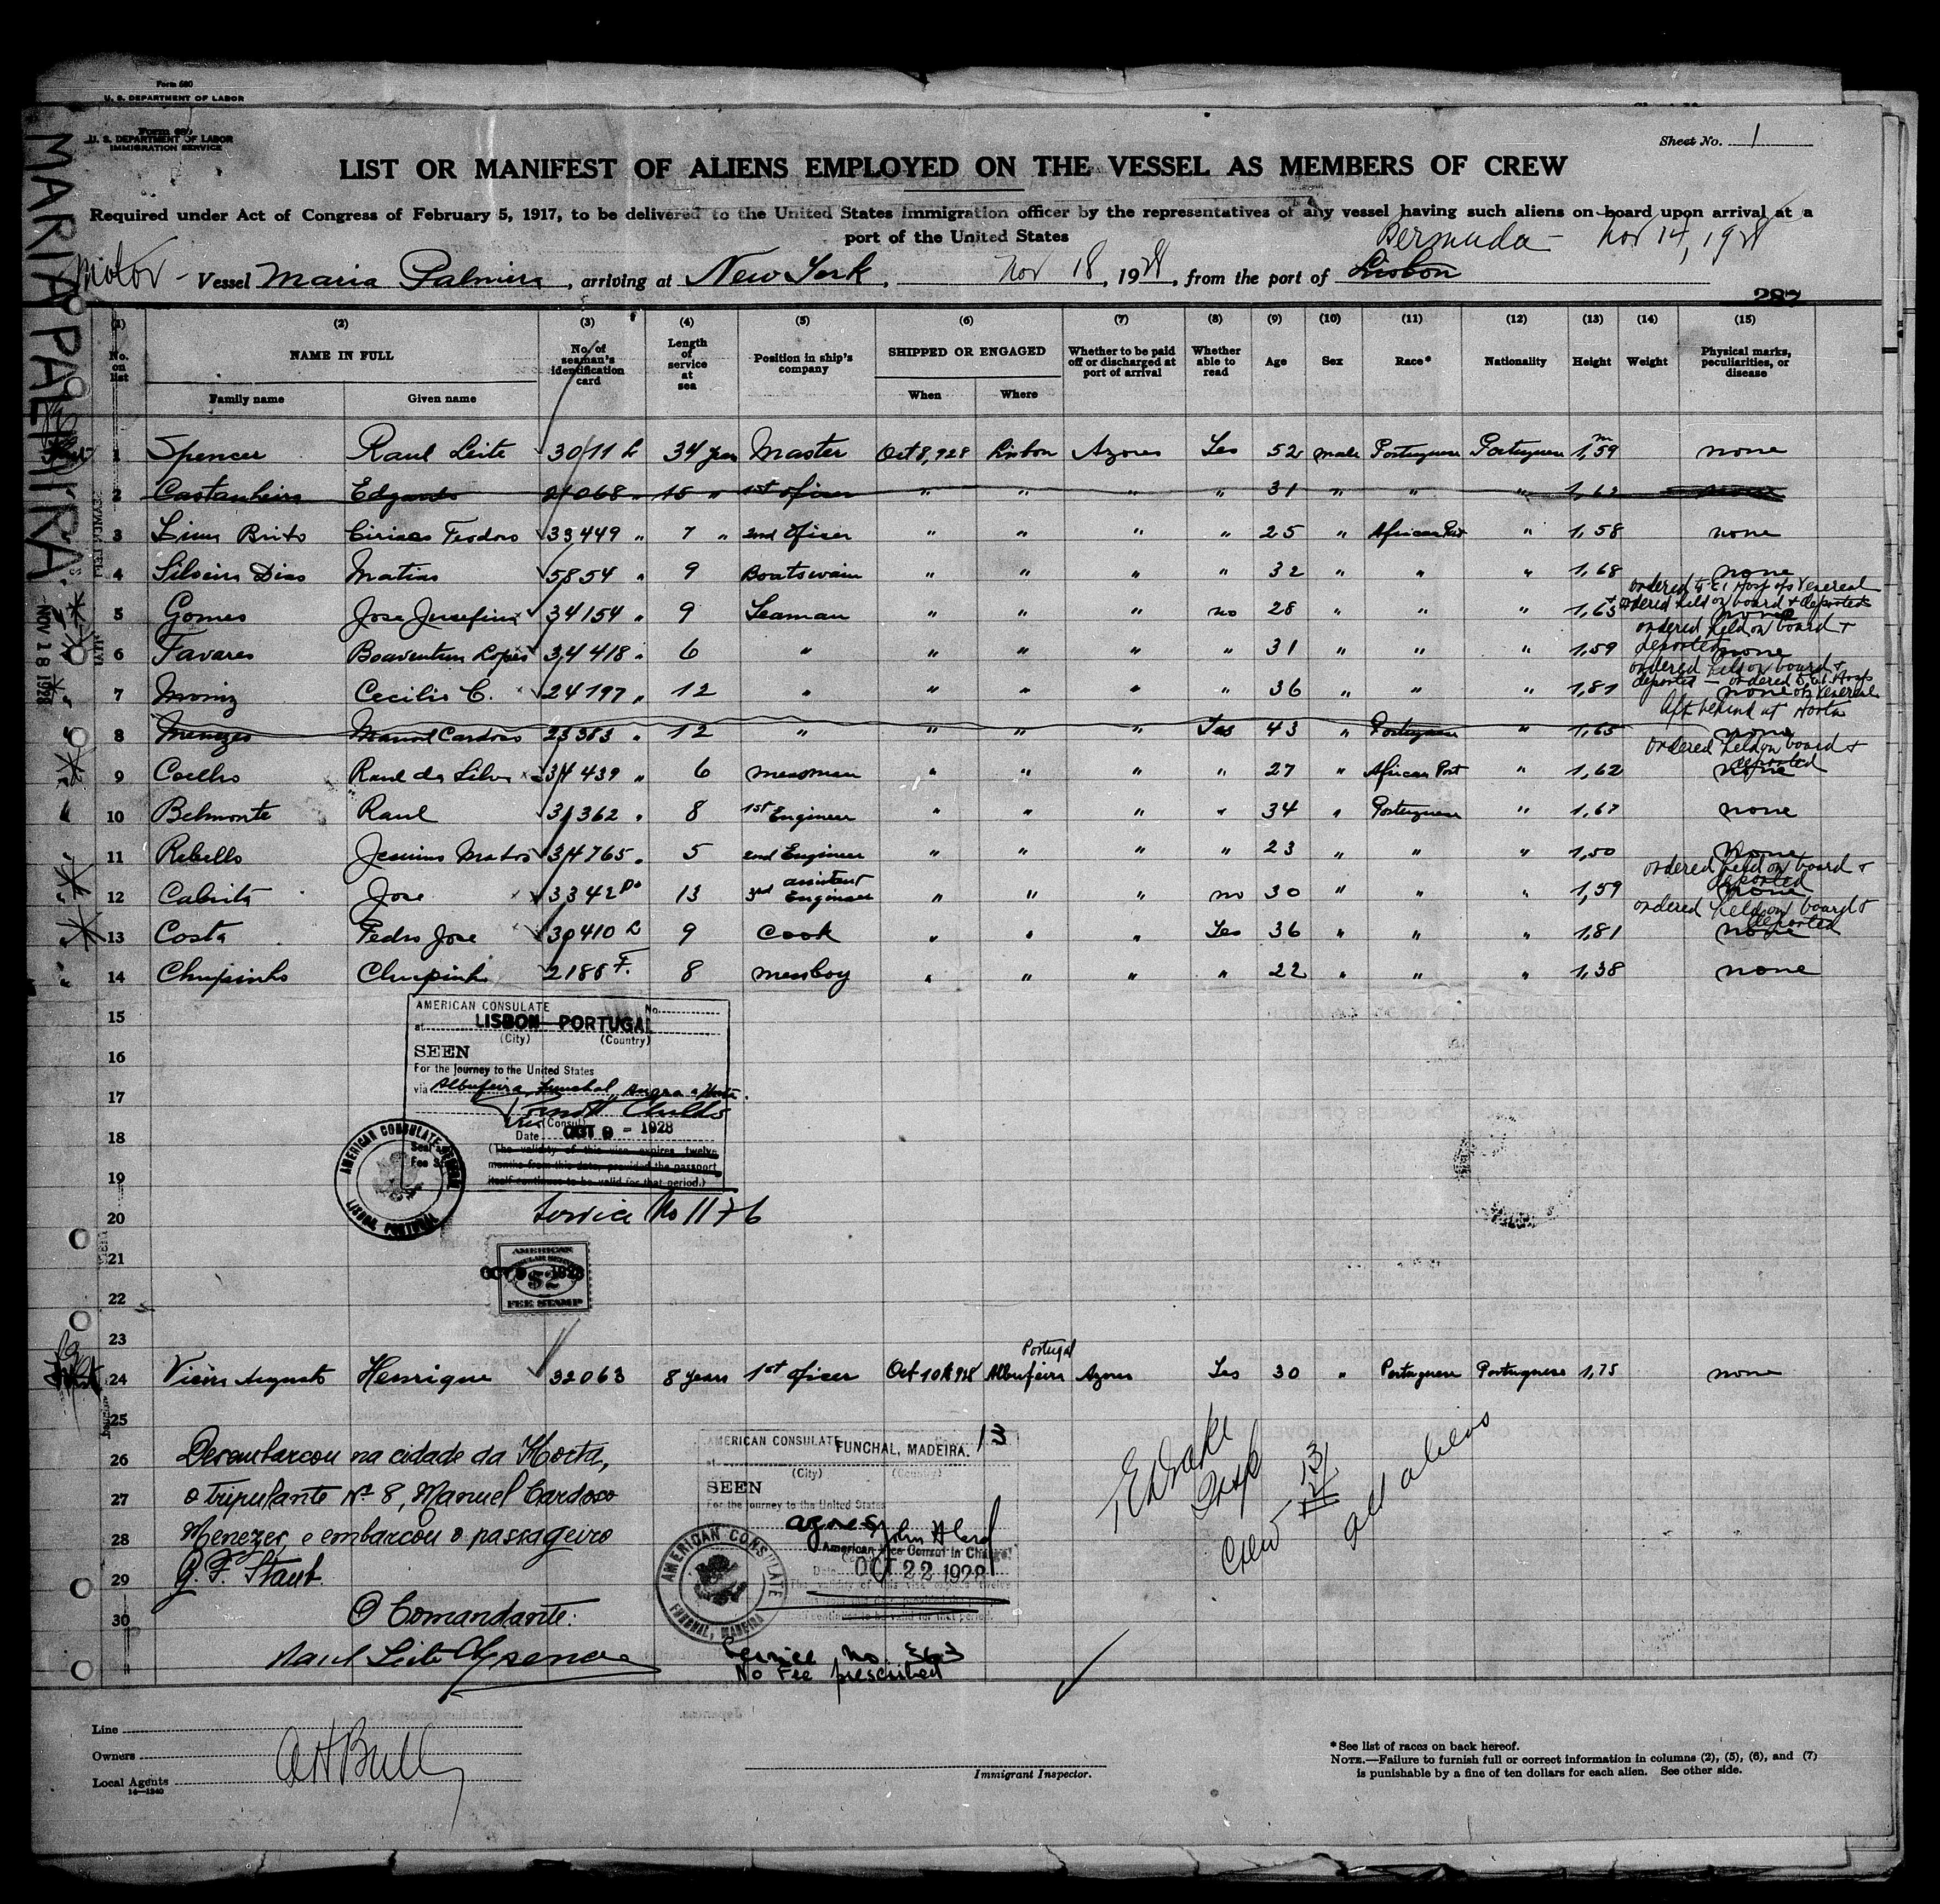 Form 680
U. S. DEPARTMENT OF LABOR
U. S. DEPARTMENT OF LABOR
IMMIGRATION SERVICE
Sheet No. 1
LIST OR MANIFEST OF ALIENS EMPLOYED ON THE VESSEL AS MEMBERS OF CREW
Required under Act of Congress of February 5, 1917, to be delivered to the United States immigration officer by the representatives of any vessel having such aliens on board upon arrival at a
port of the United States
Bermuda - Nov 14, 1928
Motor - Vessel Maria Palmira, arriving at New York, Nov 18, 1928, from the port of Lisbon
MARIA PALMIRA
NOV 18 1928
(1) (2) (3) (4) (5) (6) (7) (8) (9) (10) (11) (12) (13) (14) (15)
No. on list
NAME IN FULL
Family name Given name
No. of seaman's identification card
Length of service at sea
Position in ship's company
SHIPPED OR ENGAGED
When Where
Whether to be paid off or discharged at port of arrival
Whether able to read
Age
Sex
Race*
Nationality
Height
Weight
Physical marks, peculiarities, or disease
1 Spencer Raul Leite 3011 L 34 years Master Oct 8, 928 Lisbon Azores Yes 52 male Portuguese Portuguese 1,59 none
2 Castanheira Edgardo 21068 " 15 " 1st oficer " " " " 31 " " " 1,62 none
3 Lima Brito Ciriaco Teodoro 33449 " 7 " 2nd oficer " " " " 25 " African Port " 1,58 none
4 Silveira Dias Matias 5854 " 9 Boatswain " " " " 32 " " " 1,68 none
ordered held on board & deported
5 Gomes Jose Josefina 34154 " 9 Seaman " " " no 28 " " " 1,65 none
ordered held on board &
deported
6 Tavares Boaventura Lopes 34418 " 6 " " " " " 31 " " " 1,59 none
ordered held on board &
7 Moniz Cecilio C. 24197 " 12 " " " " " 36 " " " 1,81 none
left behind at Horta
8 Menezes Manoel Cardoso 23383 " 12 " " " " Yes 43 " Portuguese " 1,65 none
ordered held on board &
deported
9 Coelho Raul da Silva 34439 " 6 messman " " " " 27 " African Port " 1,62 none
10 Belmonte Raul 31362 " 8 1st Engineer " " " " 34 " Portuguese " 1,67 none
11 Rebello Jesuino Matos 34765 " 5 2nd Engineer " " " " 23 " " " 1,50 none
ordered held on board &
deported
12 Cabrita Jose 3342 13 3rd assistent Engineer " " " no 30 " " " 1,59 none
ordered held on board &
deported
13 Costa Pedro Jose 30410 L 9 Cook " " " Yes 36 " " " 1,81 none
14 Chupinho Chupinho 2188 F. 8 messboy " " " " 22 " " " 1,38 none
15
16
17
18
19
20
21
22
23
AMERICAN CONSULATE No.
at LISBON PORTUGAL
(City) (Country)
SEEN
For the journey to the United States
via Albufeira, Funchal, Angra & Horta.
(Consul)
Date OCT 9 - 1928
(The validity of this visa expires twelve
months from this date, provided the passport
itself continues to be valid for that period.)
AMERICAN CONSULATE GENERAL
LISBON, PORTUGAL
Service No 1176
AMERICAN
CONSULAR SERVICE
OCT 9 1928
$2
FEE STAMP
Portugal
24 Vieira Augusto Henrique 32063 8 years 1st oficer Oct 10th 928 Albufeira Azores Yes 30 " Portuguese Portuguese 1,75 none
25
26
27
28
29
30
Desembarcou na cidade da Horta,
o tripulante Nº 8, Manuel Cardoso
Menezes, e embarcou o passageiro
G. F. Staub.
O Comandante:
Raul Leite Spencer
AMERICAN CONSULATE FUNCHAL, MADEIRA. 13
at
(City) (Country)
SEEN
For the journey to the United States
American Vice Consul in Charge
Date OCT 22 1928
AMERICAN CONSULATE
FUNCHAL, MADEIRA
Service No. 363
No Fee prescribed
Insp
Crew 13
all aliens
Line
Owners
Local Agents
A H Bull
14-1240
Immigrant Inspector.
*See list of races on back hereof.
NOTE.—Failure to furnish full or correct information in columns (2), (5), (6), and (7)
is punishable by a fine of ten dollars for each alien. See other side.